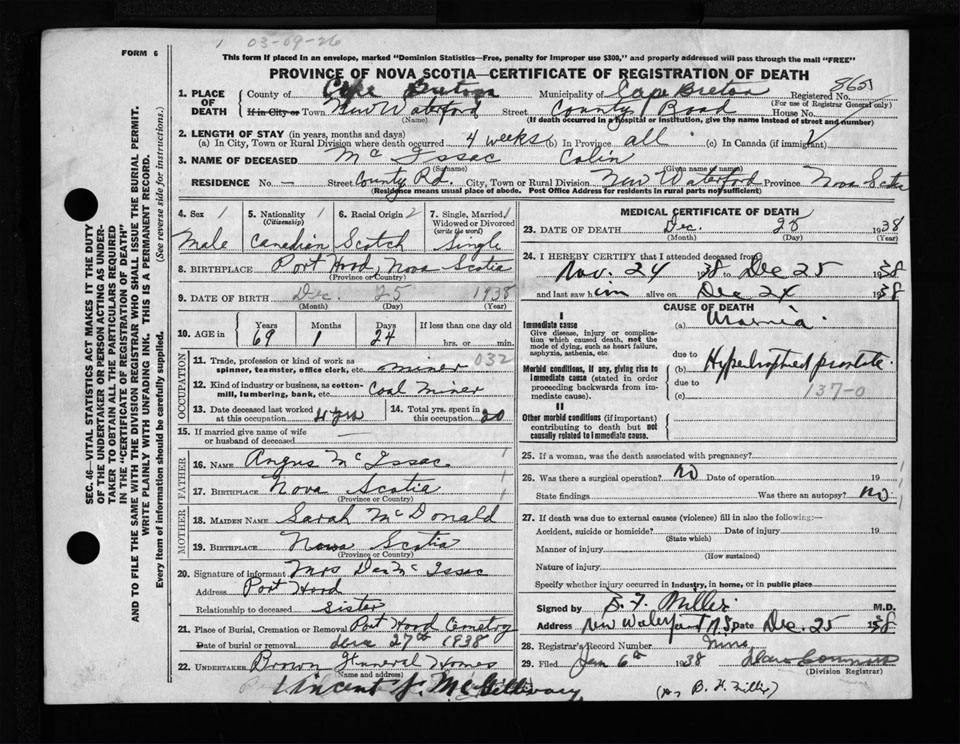 03-09-26
FORM 6
This form if placed in an envelope, marked "Dominion Statistics—Free, penalty for improper use $300," and properly addressed will pass through the mail "FREE"
PROVINCE OF NOVA SCOTIA—CERTIFICATE OF REGISTRATION OF DEATH
SEC. 46—VITAL STATISTICS ACT MAKES IT THE DUTY
OF THE UNDERTAKER OR PERSON ACTING AS UNDER-
TAKER TO OBTAIN ALL THE PARTICULARS REQUIRED
IN THE "CERTIFICATE OF REGISTRATION OF DEATH"
AND TO FILE THE SAME WITH THE DIVISION REGISTRAR WHO SHALL ISSUE THE BURIAL PERMIT.
WRITE PLAINLY WITH UNFADING INK. THIS IS A PERMANENT RECORD.
Every item of information should be carefully supplied. (See reverse side for instructions.)
1. PLACE OF DEATH County of Cape Breton Municipality of Cape Breton Registered No.
(For use of Registrar General only)
If in City or Town New Waterford Street County Road House No.
(Name) (If death occurred in a hospital or institution, give the name instead of street and number)
2. LENGTH OF STAY (in years, months and days)
(a) In City, Town or Rural Division where death occurred 4 weeks (b) In Province all (c) In Canada (if immigrant)
3. NAME OF DECEASED Mc Issac Colin
(Surname) (Given name or names)
RESIDENCE No. — Street County Rd. City, Town or Rural Division New Waterford Province Nova Scotia
(Residence means usual place of abode. Post Office Address for residents in rural parts not sufficient)
4. Sex 1 5. Nationality 1 6. Racial Origin 2 7. Single, Married 1
(Citizenship) Widowed or Divorced
(write the word)
Male Canadian Scotch Single
8. BIRTHPLACE Port Hood, Nova Scotia
(Province or Country)
9. DATE OF BIRTH Dec. 25 1938
(Month) (Day) (Year)
10. AGE in Years Months Days If less than one day old
69 1 24 hrs. or min.
OCCUPATION
11. Trade, profession or kind of work as 032
spinner, teamster, office clerk, etc. miner
12. Kind of industry or business, as cotton-
mill, lumbering, bank, etc. Coal Miner
13. Date deceased last worked at this occupation 4 yrs 14. Total yrs. spent in this occupation 20
15. If married give name of wife
or husband of deceased —
FATHER
16. NAME Angus Mc Issac
17. BIRTHPLACE Nova Scotia
(Province or Country)
MOTHER
18. MAIDEN NAME Sarah McDonald
19. BIRTHPLACE Nova Scotia
(Province or Country)
20. Signature of informant Mrs Dan Mc Issac
Address Port Hood
Relationship to deceased Sister
21. Place of Burial, Cremation or Removal Port Hood Cemetry
Date of burial or removal dec 27th 1938
22. UNDERTAKER Brown Funeral Homes
(Name and address)
Vincent J. McGillivary
MEDICAL CERTIFICATE OF DEATH
23. DATE OF DEATH Dec. 25 1938
(Month) (Day) (Year)
24. I HEREBY CERTIFY that I attended deceased from
Nov. 24 38 Dec 25 1938
and last saw him alive on Dec 24 1938
CAUSE OF DEATH
I
Immediate cause (a) Uraemia
Give disease, injury or complica-
tion which caused death, not the
mode of dying, such as heart failure,
asphyxia, asthenia, etc.
due to
Morbid conditions, if any, giving rise to (b) Hypertrophied prostate
immediate cause (stated in order
proceeding backwards from im-
mediate cause).
due to 137-0
(c)
II
Other morbid conditions (if important)
contributing to death but not
causally related to immediate cause.
25. If a woman, was the death associated with pregnancy?
26. Was there a surgical operation? No Date of operation 19
State findings Was there an autopsy? No
27. If death was due to external causes (violence) fill in also the following:—
Accident, suicide or homicide? Date of injury 19
(State which)
Manner of injury
(How sustained)
Nature of injury
Specify whether injury occurred in industry, in home, or in public place
Signed by B. F. Miller M.D.
Address New Waterford N.S. Date Dec. 25 1938
28. Registrar's Record Number
29. Filed Jan 6th 1938
(Division Registrar)